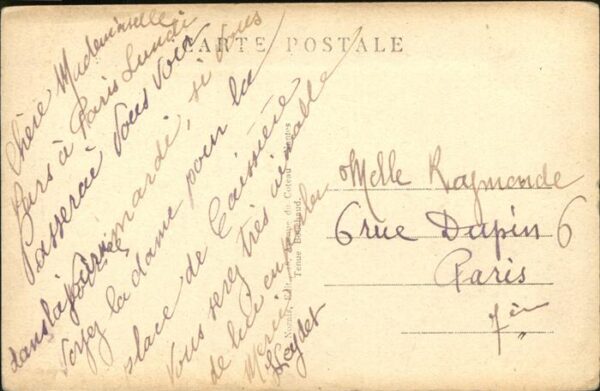 CARTE POSTALE
Chère Mademoiselle
Pars à Paris Lundi
Passerai Vous Voir
mardi, si vous
dans la journée
voyez la dame pour la
place de Caissière
Vous serez très aimable
de lui en
Merci
Leydet
Melle Raymonde
6 rue Dupin 6
Paris
7è